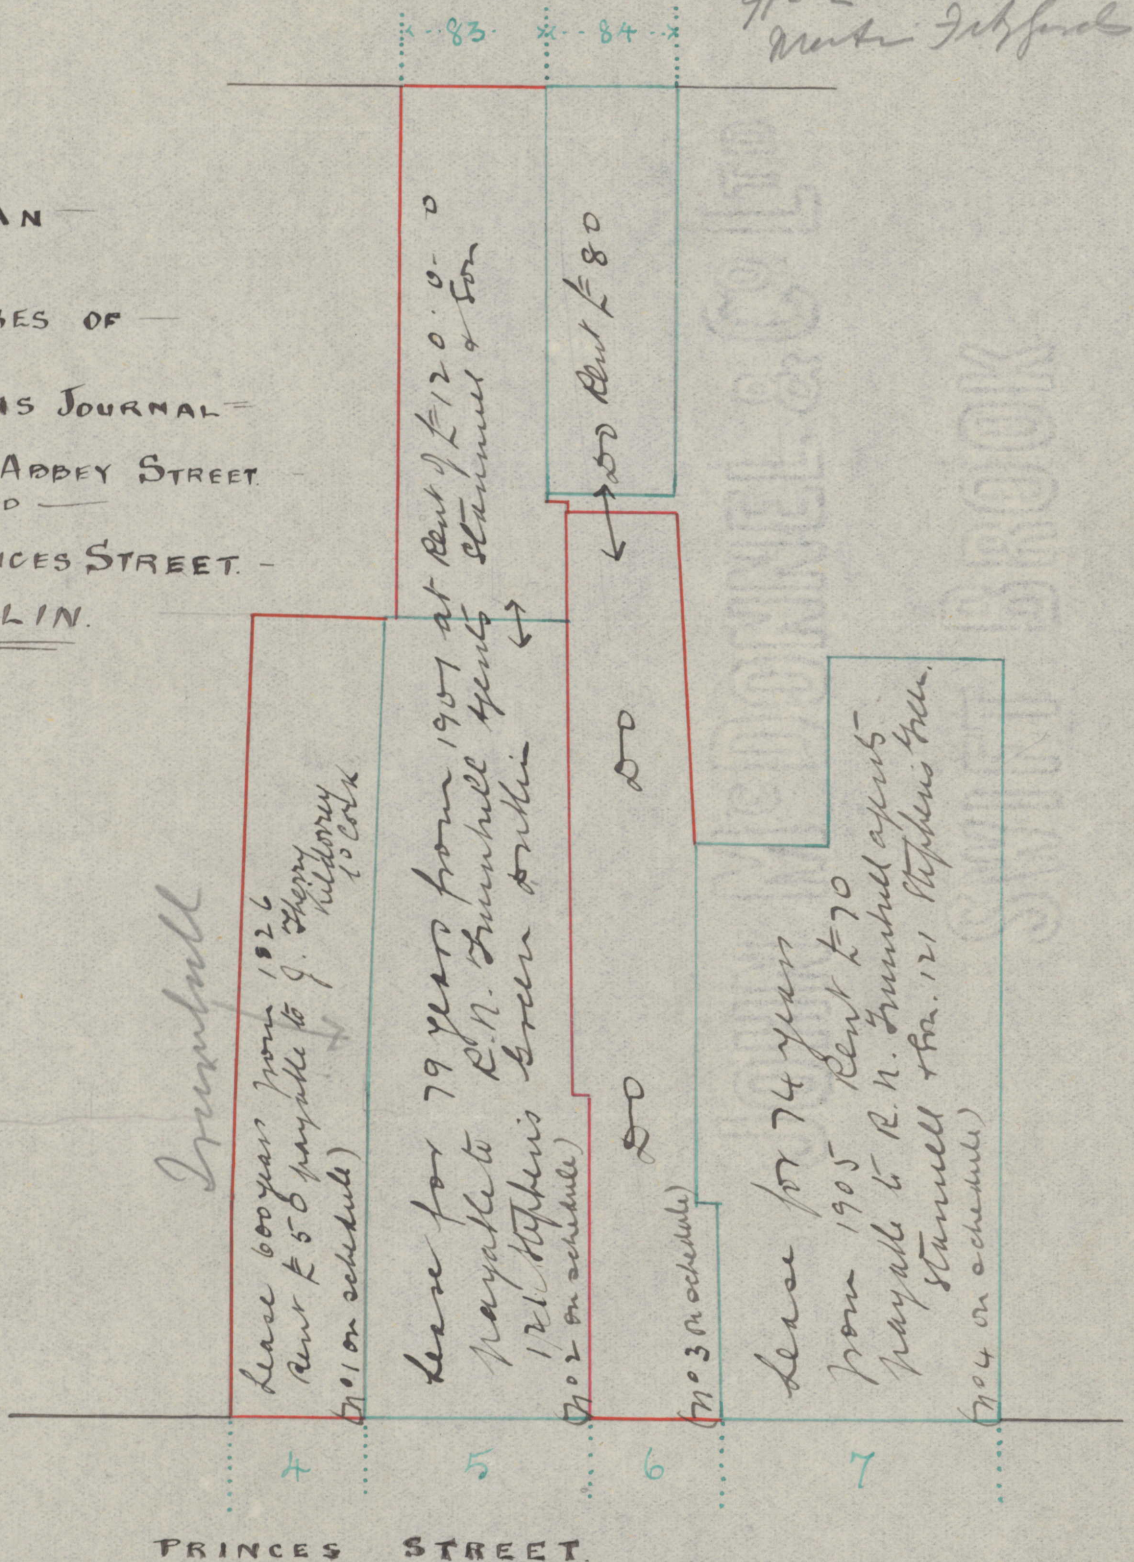 83
84
AN
SES OF
NS JOURNAL
ABBEY STREET.
D
NCES STREET.
LIN.
Trumbull
Lease 600 years from 1826
Rent £50 payable to J. Therry
Kildorrey
Co Cork
(No 1 on schedule)
Lease for 79 years from 1901 at Rent of £120.0.0
payable to R. N. Trumbull Agents Stammell & Son
121 Stephens Green Dublin
(No 2 on schedule)
Do Rent £80
Do
Do
(No 3 on schedule)
Lease for 74 years
from 1905 Rent £70
payable to R. N. Trumbull agents
Stammell & Son. 121 Stephens Green.
(No 4 on schedule)
JOHN McDONNELL & Co LTD
SWIFT BROOK
4
5
6
7
PRINCES STREET.